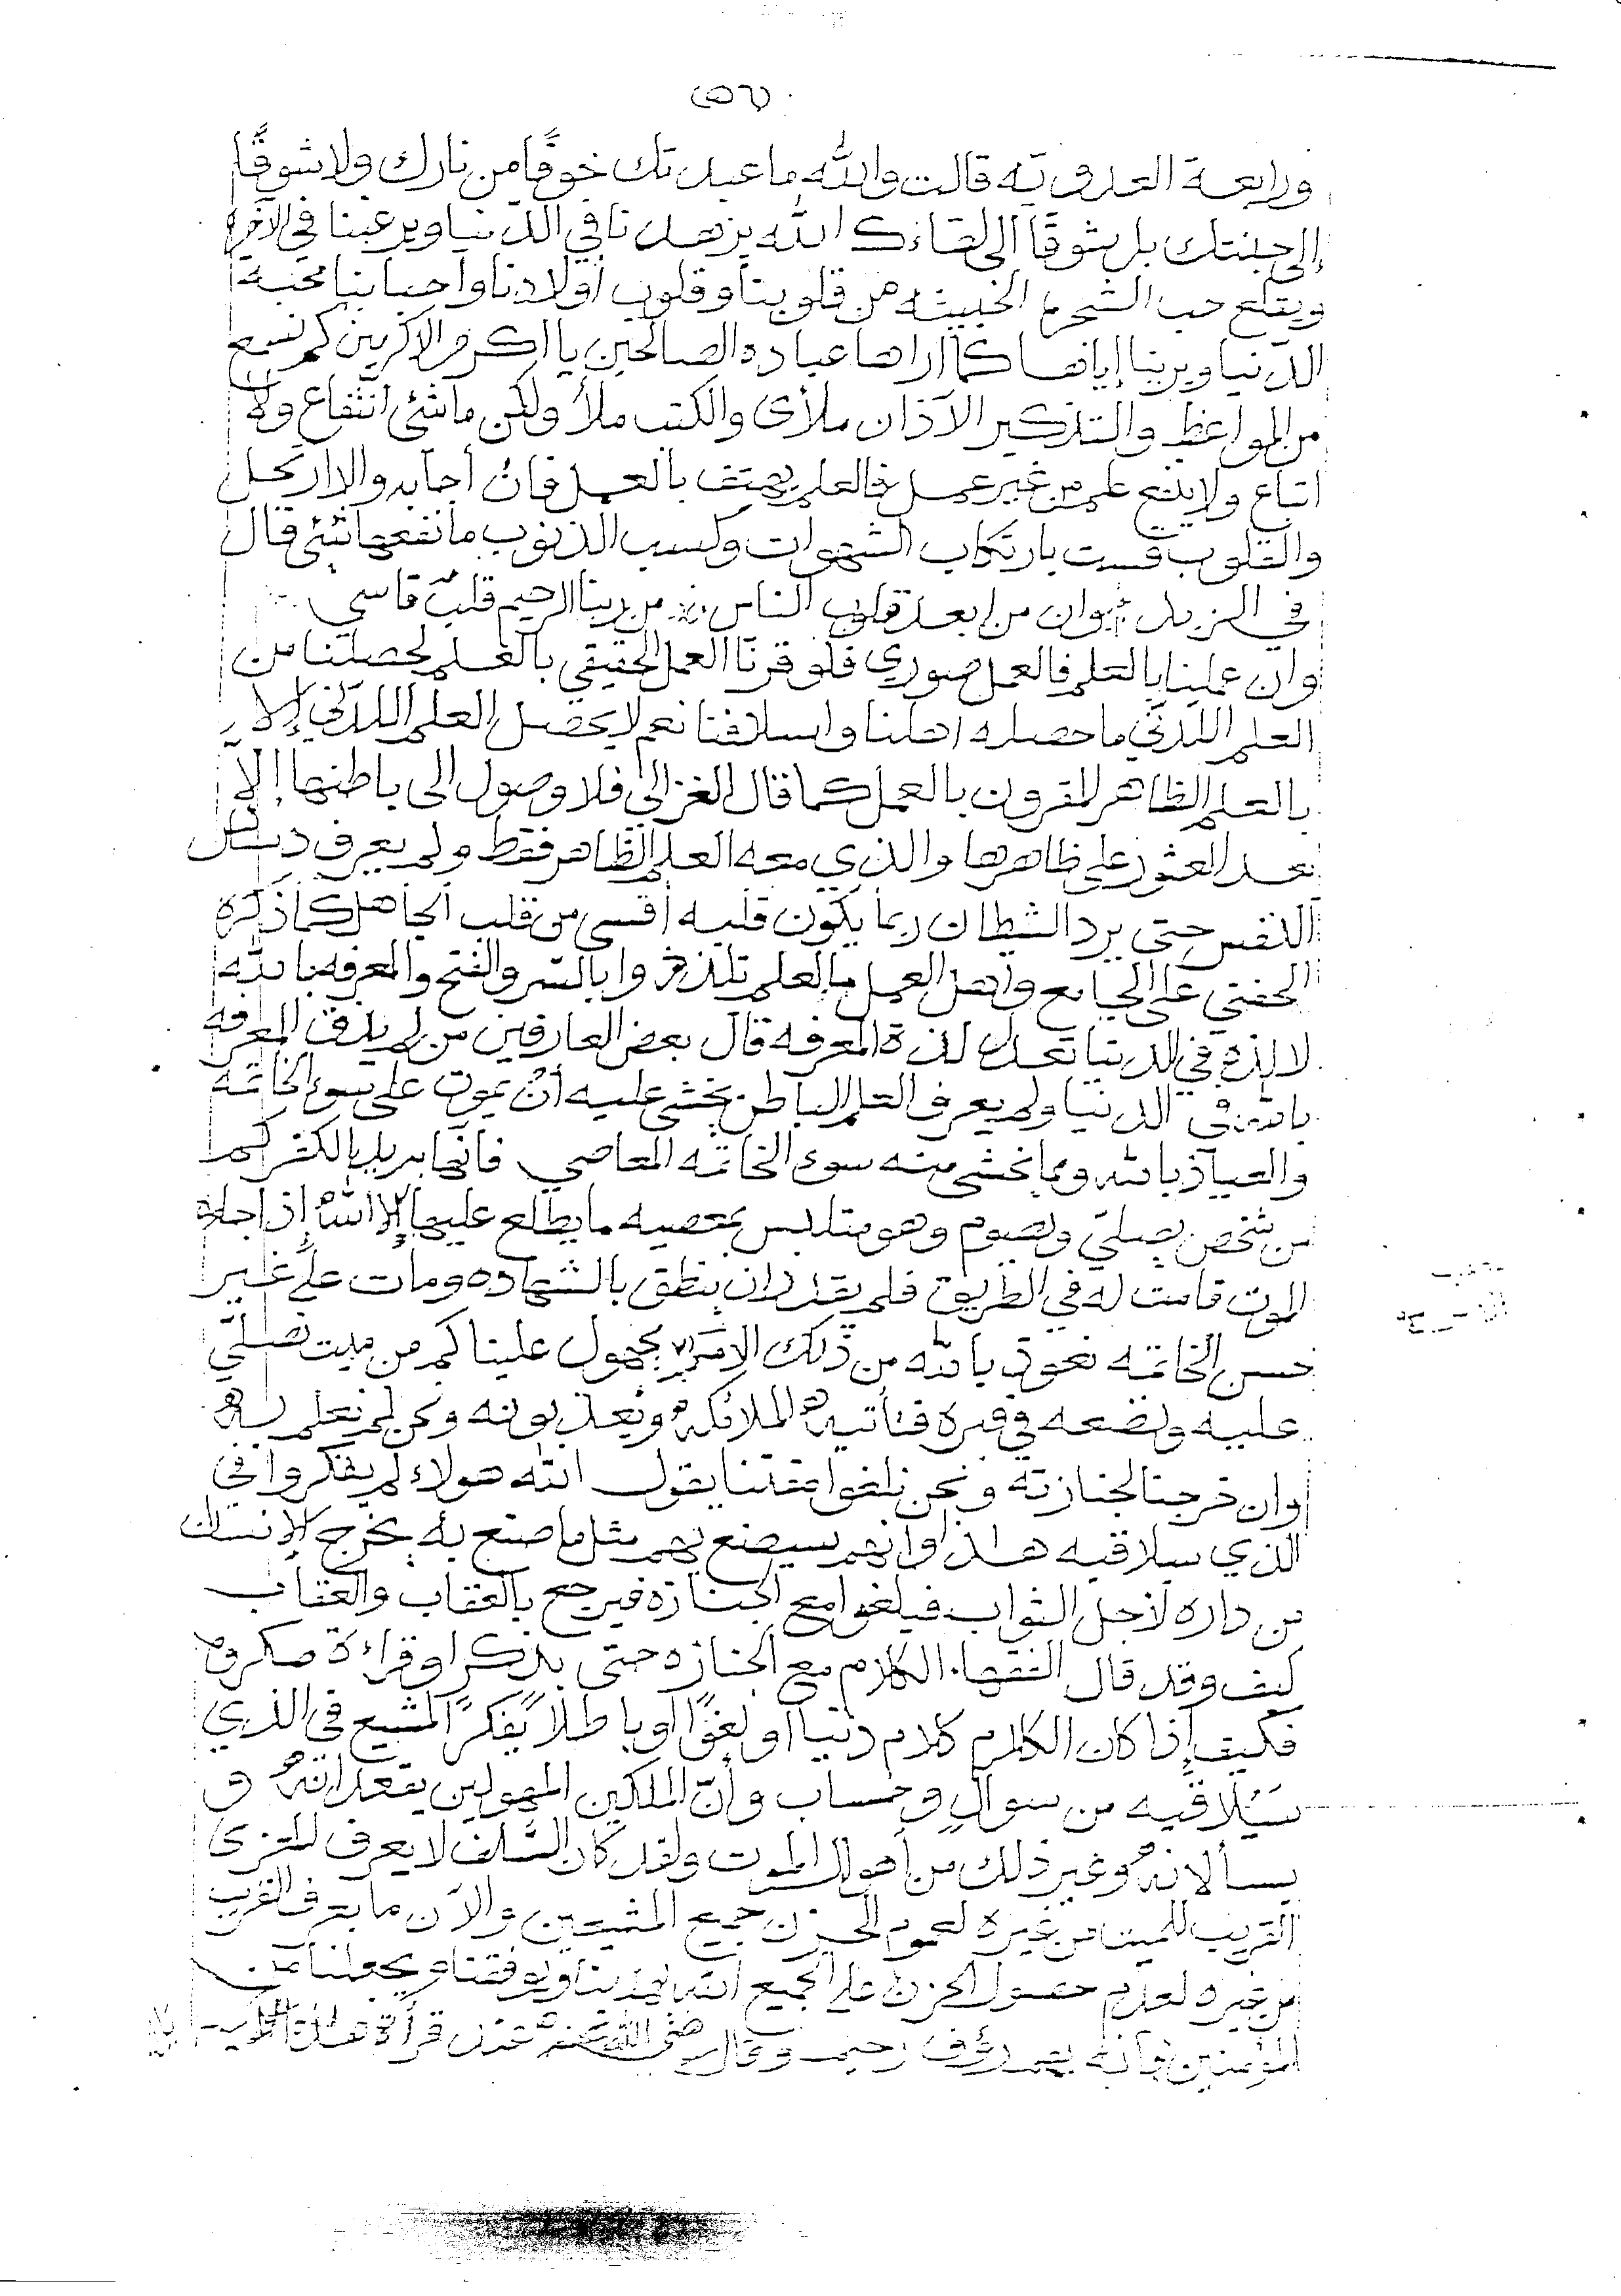 (٥٦)
ورابعة العدوية قالت والله ما عبدتك خوفًا من نارك ولا شوقًا
إلى جنتك بل شوقًا الى لقاءك الله يزهدنا في الدنيا ويرغبنا في الآخره
ويقلع حب الشجره الخبيثه من قلوبنا وقلوب أولادنا وأحبابنا محبة
الدنيا ويرينا إياها كما أراها عباده الصالحين يا اكرم الاكرمين كم نسمع
من المواعظ والتذكير الآذان ملأى والكتب ملأ ولكن ماشئ انتفاع ولا
اتباع ولا ينفع علم من غير عمل فالعلم يهتف بالعمل فان أجابه والا ارتحل
والقلوب قست بارتكاب الشهوات وكسب الذنوب ما نفعها شئ قال
في الزبد وان من ابعد قلوب الناس من ربنا الرحيم قلبٌ قاسي
وان عملنا بالعلم فالعمل صوري فلو قرنّا العمل الحقيقي بالعلم لحصلنا من
العلم اللدنّي ما حصله اهلنا واسلافنا نعم لا يحصل العلم اللدنّي إلا
بالعلم الظاهر المقرون بالعمل كما قال الغزالي فلا وصول الى باطنها إلا
بعد العثور على ظاهرها والذي معه العلم الظاهر فقط ولم يعرف دسائس
النفس حتى يرد الشطان ربما يكون قلبه أقسى من قلب الجاهل كما ذكره
الحفني على الجامع واهل العمل بالعلم تلذذوا بالسر والفتح والمعرفه بالله
لا لذه في الدنيا تعدل لذة المعرفه قال بعض العارفين من لم يذق المعرفه
بالله في الدنيا ولم يعرف العلم الباطن يخشى عليه أن يموت على سوء الخاتمه
والعياذ بالله ومما يخشى منه سوء الخاتمه المعاصي فانها بريد الكفر كم
من شخص يصلي ويصوم وهو متلبس بمعصيه ما يطلع عليها إلا الله إذا جاءه
الموت قامت له في الطريق فلم يقدر ان ينطق بالشهاده ومات على غير
حسن الخاتمه نعوذ بالله من ذلك الامر مجهول علينا كم من ميت نصلّي
عليه ونضعه في قبره فتأتيه الملائكة ويعذبونه ونحن لم نعلم به
وان خرجنا لجنازته ونحن نلغوا مقتنا يقول الله هولاء لم يفكروا في
الذي سيلاقيه هذا وانهم سيصنع بهم مثل ما صنع به يخرج الإنسان
من داره لأجل الثواب فيلغوا مع الجنازه فيرجع بالعقاب والعقاب
كيف وقد قال الفقهاء الكلام مع الجنازه حتى بذكر او قراءة مكروه
فكيف إذا كان الكلام كلام دنيا أو لغوًا او باطلا يفكر المشيع في الذي
سيلاقيه من سوالٍ وحساب وأنّ الملكين المهولين يقعدانه و
يسألانه وغير ذلك من أهوال الموت ولقد كان السلف لا يعرف المعزى
القريب للميت من غيره لعموم الحزن جميع المشيعين والآن ما يعرف القريب
من غيره لعدم حصول الحزن على الجميع الله يهدينا ويوفقنا ويجعلنا من
المؤمنين فأنه بهم رؤف رحيم وقال رضي الله عنه عند قرأة هذه